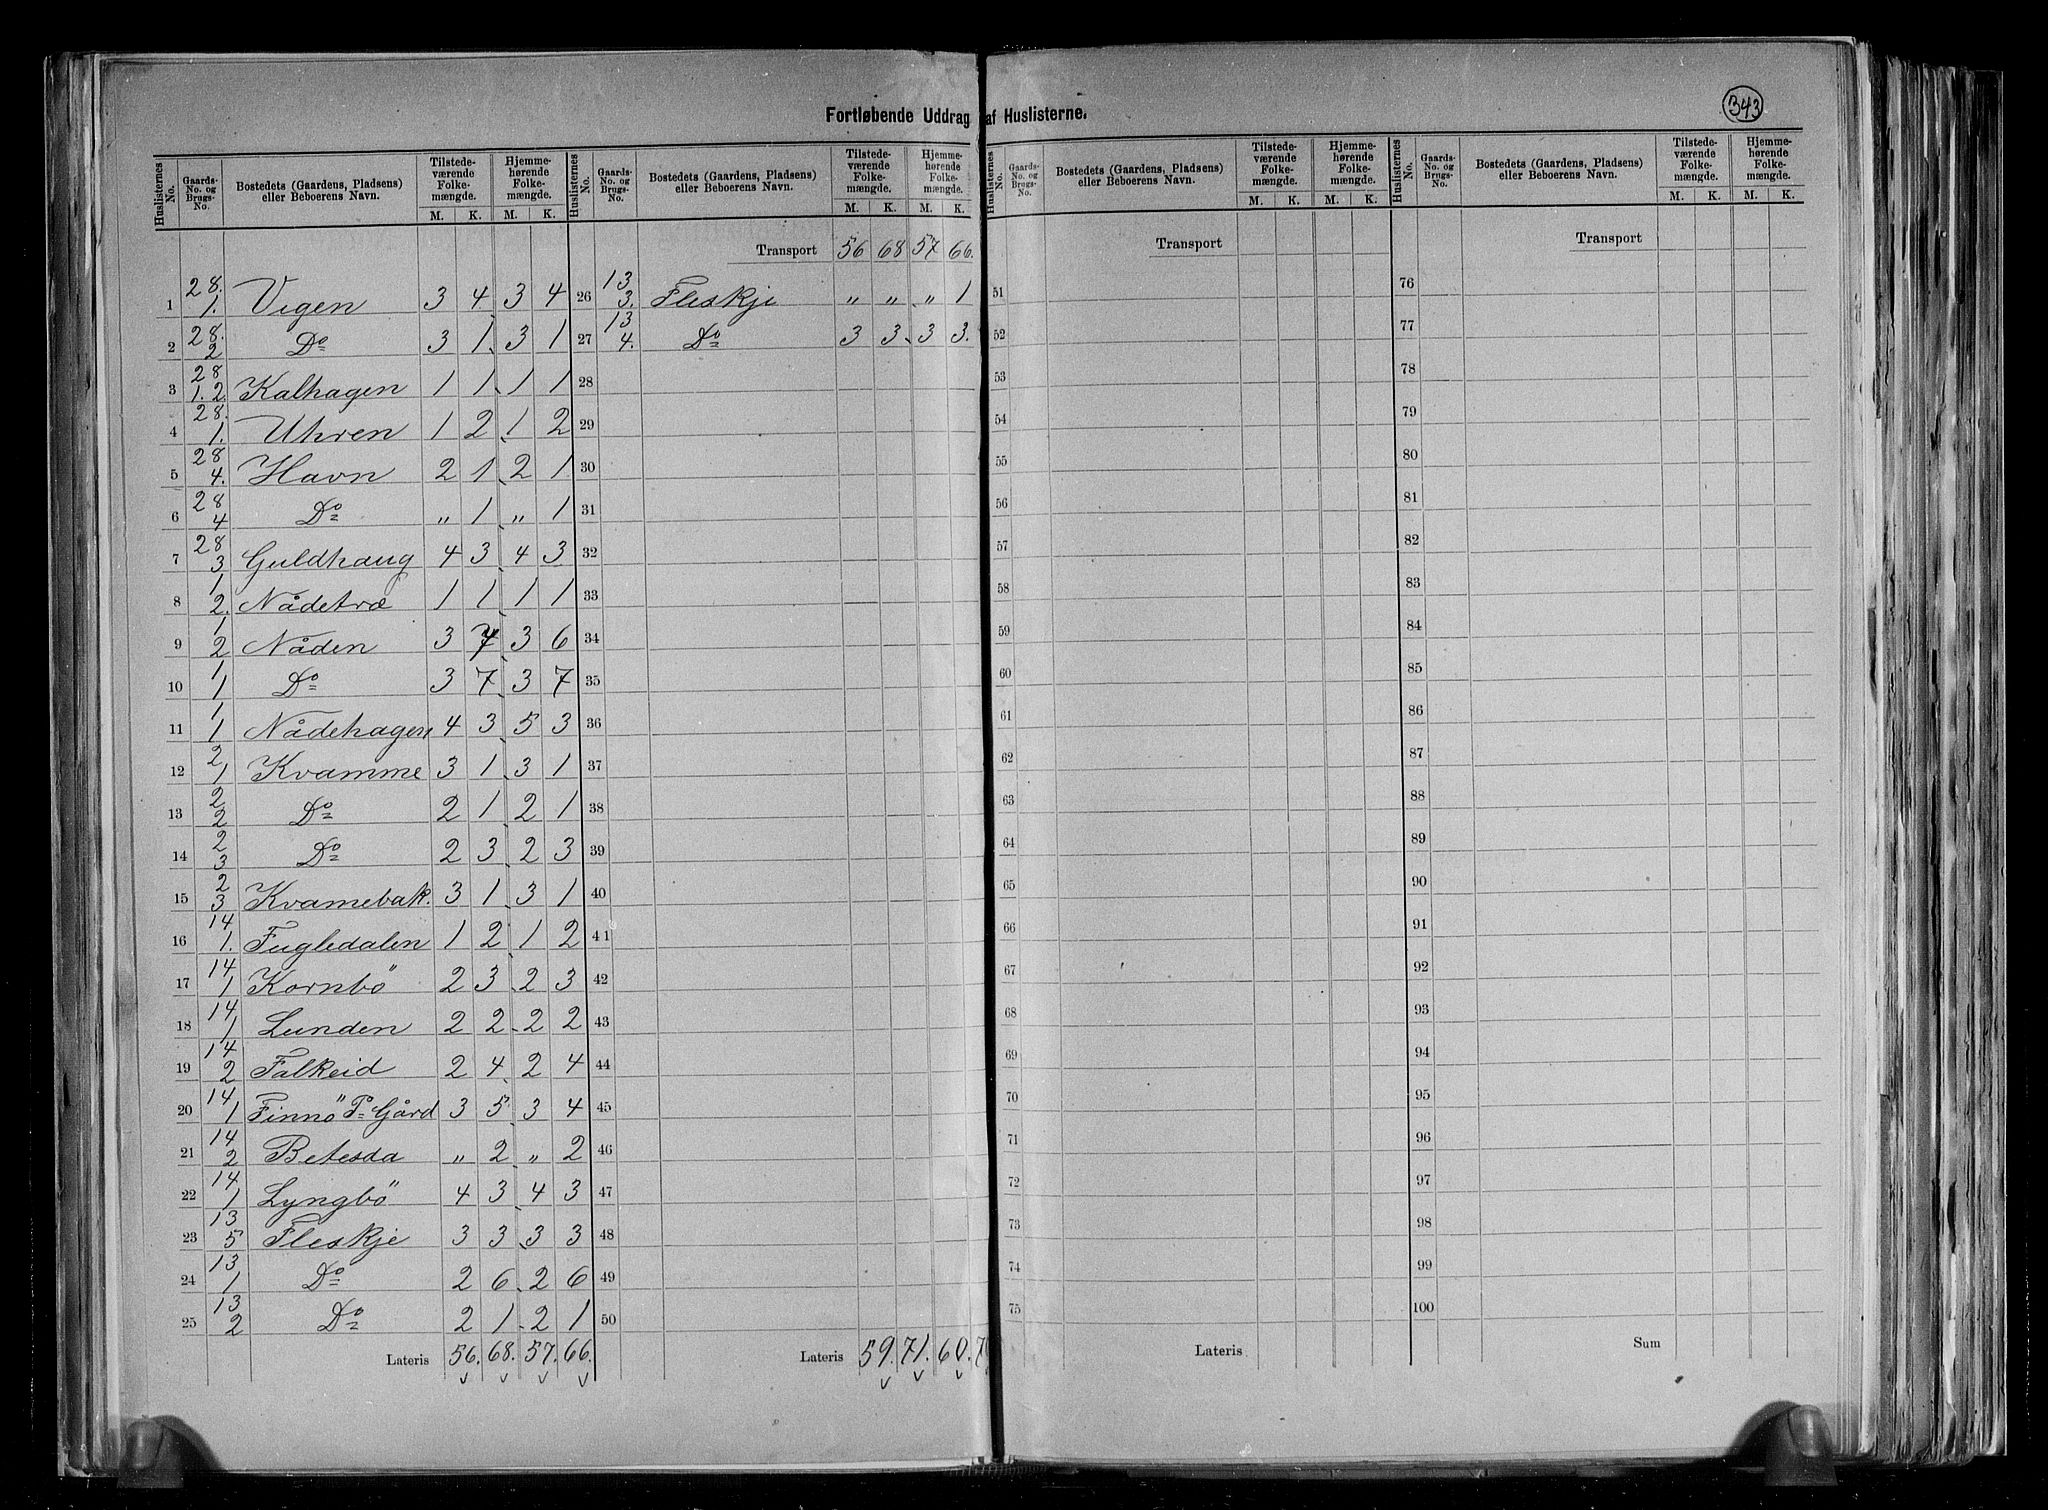 Fortløbende Uddrag af Huslisterne.
343
Huslisternes No. | Gaards-No. og Brugs-No. | Bostedets (Gaardens, Pladsens) eller Beboerens Navn. | Tilstedeværende Folkemængde. M. K. | Hjemmehørende Folkemængde. M. K.
1 28. 1. Vigen 3 4. 3 4
2 28. 2 Do 3 1. 3 1
3 28 1.2. Kalhagen 1 1. 1 1
4 28. 1. Uhren 1 2. 1 2
5 28 4. Havn 2 1. 2 1
6 28 4 Do „ 1. „ 1
7 28 3 Guldhaug 4 3. 4 3
8 1 2. Nådetræ 1 1. 1 1
9 1 2 Nåden 3 7. 3 6
10 1 1 Do 3 7. 3 7
11 1 1 Nådehagen 4 3. 5 3
12 2 1 Kvamme 3 1. 3 1
13 2 2 Do 2 1. 2 1
14 2 3 Do 2 3. 2 3
15 2 3 Kvamebak. 3 1. 3 1
16 14 1. Fugledalen 1 2. 1 2
17 14 1 Kornbö 2 3. 2 3
18 14 1 Lunden 2 2. 2 2
19 14 2 Falkeid 2 4. 2 4
20 14 1 Finnö P. Gård 3 5. 3 4
21 14 2 Betesda „ 2. „ 2
22 14 1 Lyngbö 4 3. 4 3
23 13 5 Fleskje 3 3. 3 3
24 13 1 Do 2 6. 2 6
25 13 2 Do 2 1. 2 1
Lateris 56. 68. 57. 66.
Huslisternes No. | Gaards-No. og Brugs-No. | Bostedets (Gaardens, Pladsens) eller Beboerens Navn. | Tilstedeværende Folkemængde. M. K. | Hjemmehørende Folkemængde. M. K.
Transport 56 68 57 66.
26 13 3. Fleskje „ „ „ 1
27 13 4. Do 3 3. 3 3.
28
29
30
31
32
33
34
35
36
37
38
39
40
41
42
43
44
45
46
47
48
49
50
Lateris 59. 71. 60.
Huslisternes No. | Gaards-No. og Brugs-No. | Bostedets (Gaardens, Pladsens) eller Beboerens Navn. | Tilstedeværende Folkemængde. M. K. | Hjemmehørende Folkemængde. M. K.
Transport
51
52
53
54
55
56
57
58
59
60
61
62
63
64
65
66
67
68
69
70
71
72
73
74
75
Lateris
Huslisternes No. | Gaards-No. og Brugs-No. | Bostedets (Gaardens, Pladsens) eller Beboerens Navn. | Tilstedeværende Folkemængde. M. K. | Hjemmehørende Folkemængde. M. K.
Transport
76
77
78
79
80
81
82
83
84
85
86
87
88
89
90
91
92
93
94
95
96
97
98
99
100
Sum